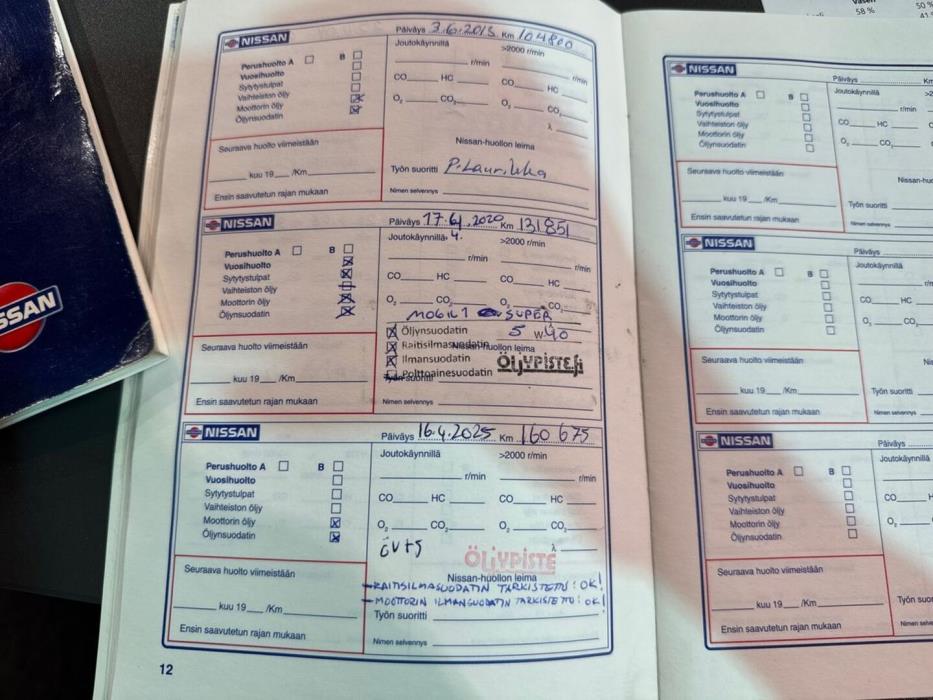 NISSAN
Päiväys 3.6.2013 Km 104800
Perushuolto A B
Vuosihuolto
Sytytystulpat
Vaihteiston öljy
Moottorin öljy
Öljynsuodatin
Joutokäynnillä >2000 r/min
r/min r/min
CO HC CO HC
O2 CO2 O2 CO2
λ
Seuraava huolto viimeistään
kuu 19 /Km
Ensin saavutetun rajan mukaan
Nissan-huollon leima
Työn suoritti
Nimen selvennys
NISSAN
Päiväys 17.6.2020 Km 131851
Perushuolto A B
Vuosihuolto
Sytytystulpat
Vaihteiston öljy
Moottorin öljy
Öljynsuodatin
Joutokäynnillä >2000 r/min
r/min r/min
CO HC CO HC
O2 CO2 O2 CO2
MOBIL 1 SUPER
5 W40
Öljynsuodatin
Raitisilmasuodatin
Ilmansuodatin
Polttoainesuodatin
Nissan-huollon leima
ÖLJYPISTE.fi
Työn suoritti
Nimen selvennys
Seuraava huolto viimeistään
kuu 19 /Km
Ensin saavutetun rajan mukaan
NISSAN
Päiväys 16.4.2025 Km 160 675
Perushuolto A B
Vuosihuolto
Sytytystulpat
Vaihteiston öljy
Moottorin öljy
Öljynsuodatin
Joutokäynnillä >2000 r/min
r/min r/min
CO HC CO HC
O2 CO2 O2 CO2
λ
ÖLJYPISTE
Nissan-huollon leima
-RAITISILMASUODATIN TARKISTETTU: OK!
-MOOTTORIN ILMANSUODATIN TARKISTETTU: OK!
Työn suoritti
Nimen selvennys
Seuraava huolto viimeistään
kuu 19 /Km
Ensin saavutetun rajan mukaan
12
NISSAN
Päiväys Km
Perushuolto A B
Vuosihuolto
Sytytystulpat
Vaihteiston öljy
Moottorin öljy
Öljynsuodatin
Joutokäynnillä
r/min
CO HC CO
O2 CO2 O2
Seuraava huolto viimeistään
kuu 19 /Km
Ensin saavutetun rajan mukaan
Työn suoritti
Nimen selvennys
NISSAN
Päiväys
Perushuolto A B
Vuosihuolto
Sytytystulpat
Vaihteiston öljy
Moottorin öljy
Öljynsuodatin
Joutokäynnillä
r/min
CO HC
O2 CO2
Seuraava huolto viimeistään
kuu 19 /Km
Ensin saavutetun rajan mukaan
Työn suoritti
Nimen selvennys
NISSAN
Päiväys
Perushuolto A B
Vuosihuolto
Sytytystulpat
Vaihteiston öljy
Moottorin öljy
Öljynsuodatin
Joutokäynnillä
CO
O2
Seuraava huolto viimeistään
kuu 19 /Km
Ensin saavutetun rajan mukaan
Nimen selvennys
58 %
50 %